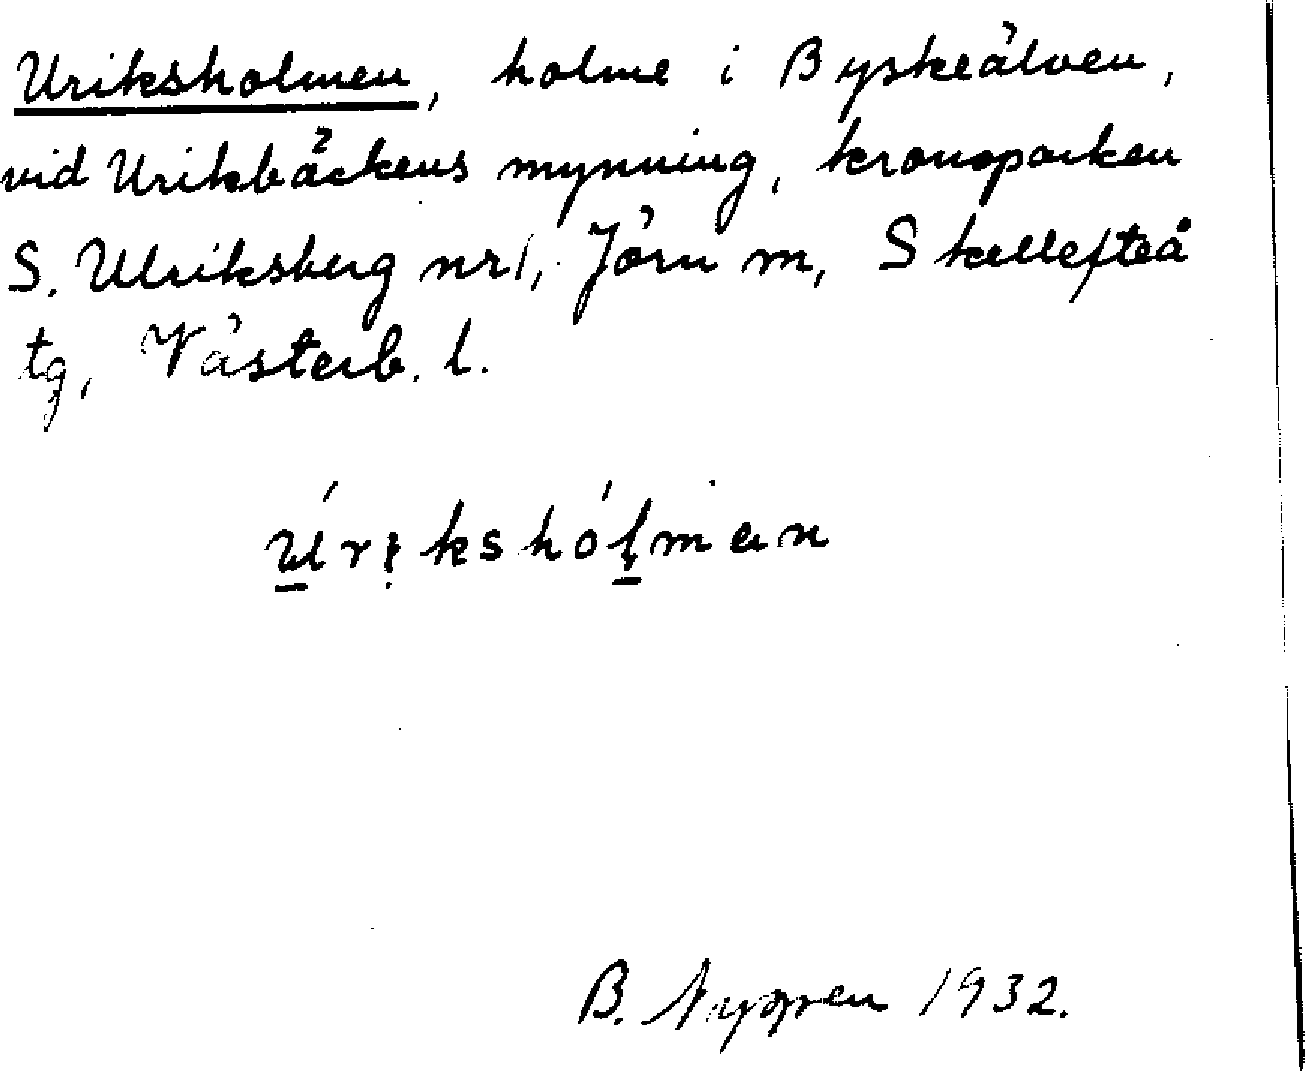 Uriksholmen, holme i Byskeälven,
vid Urikbäckens mynning, kronoparken
S. Ulriksberg nr 1, Jörn m, Skellefteå
tg, Västerb. l.
úrikshólmən
B. 1932.